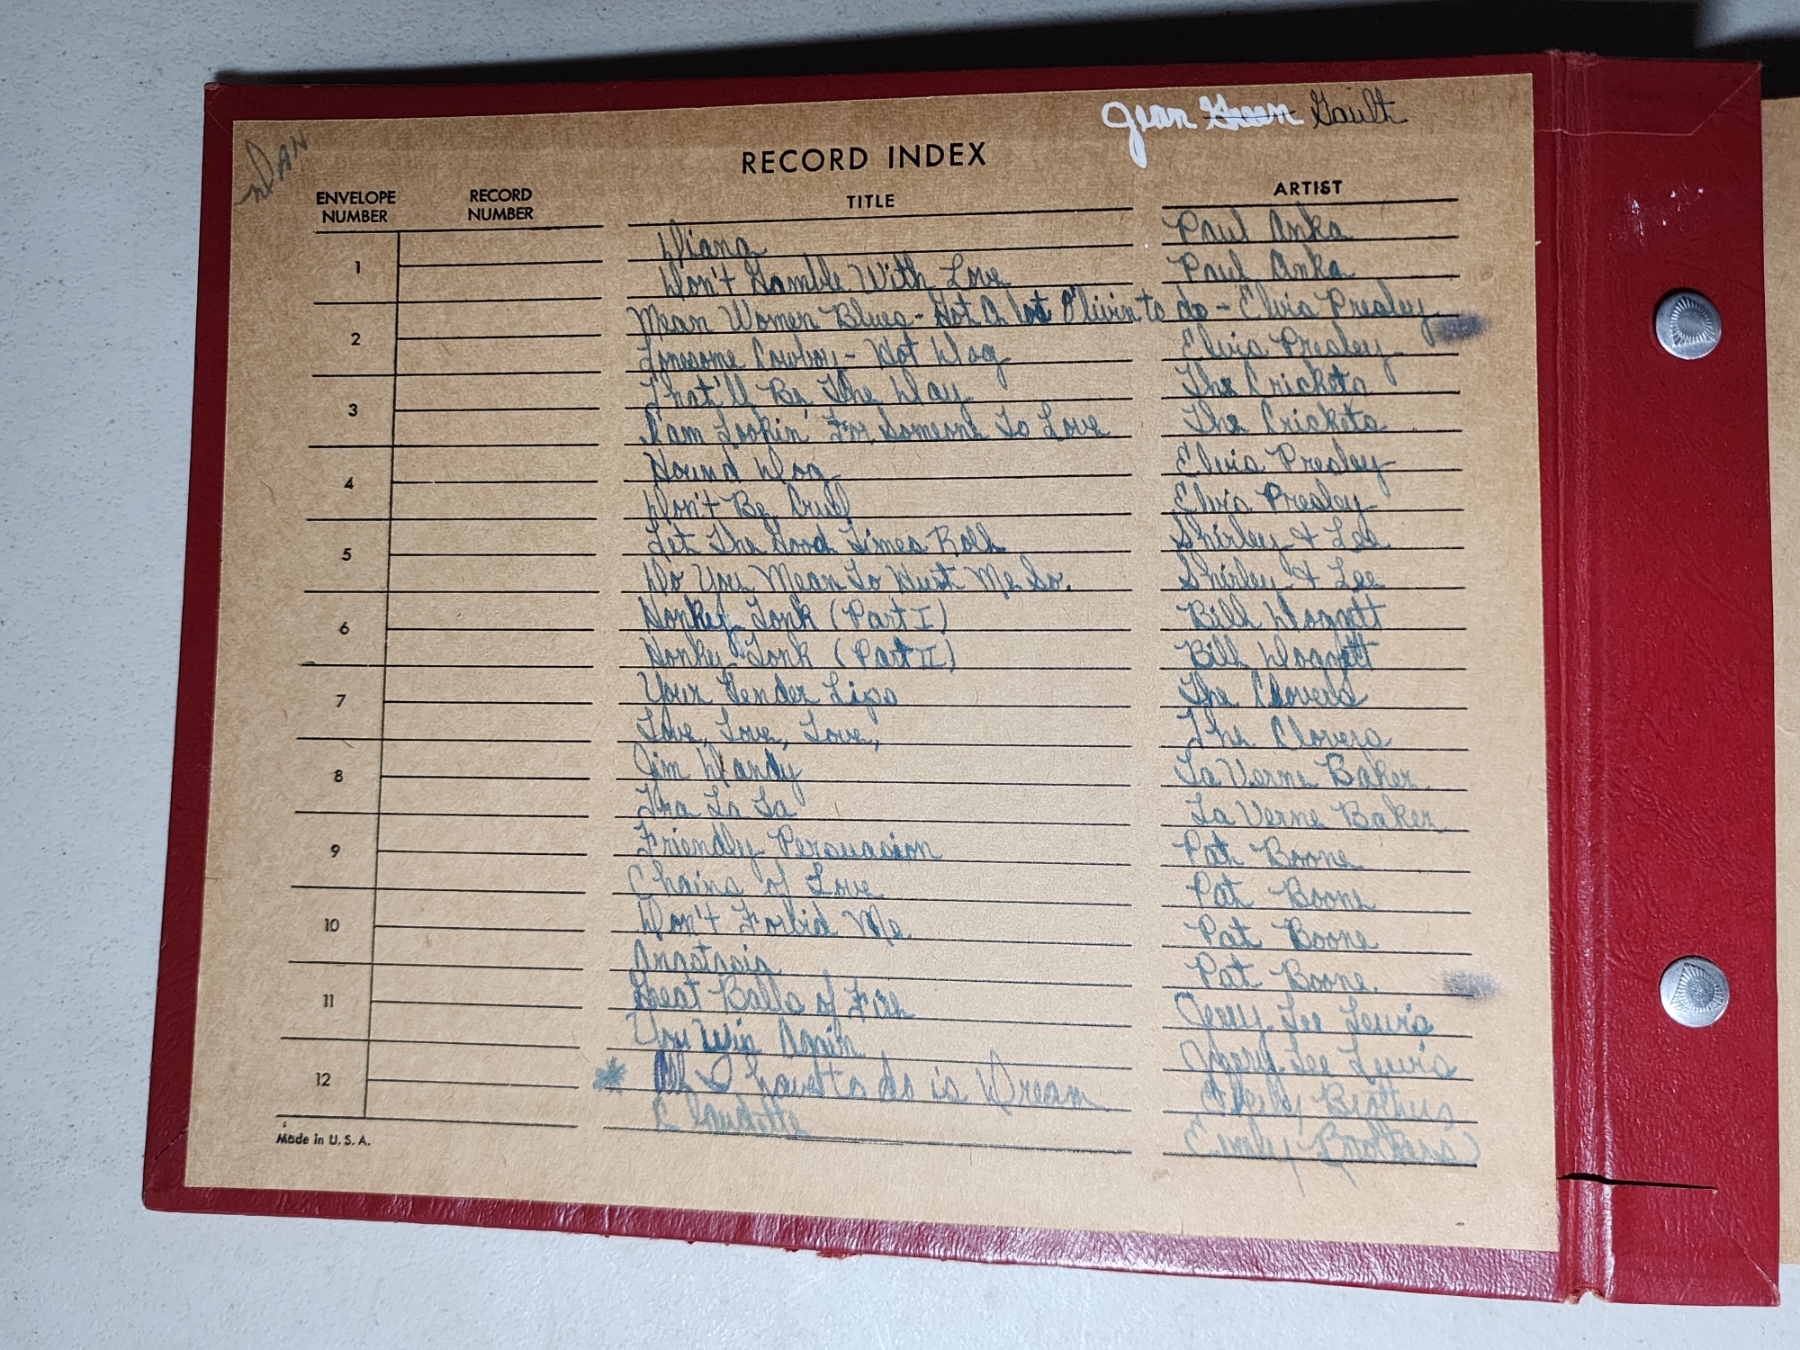 Jean Green Gault
DAN
RECORD INDEX
ENVELOPE NUMBER RECORD NUMBER TITLE ARTIST
1 Diana Paul Anka
Don't Gamble With Love Paul Anka
2 Mean Women Blues - Got A lot O' livin to do - Elvis Presley
Lonesome Cowboy - Hot Dog Elvis Presley
3 That'll Be The Day The Crickets
I'am Lookin' For Someone To Love The Crickets
4 Hound Dog Elvis Presley
Don't Be Cruel Elvis Presley
5 Let The Good Times Roll Shirley & Lee
Do You Mean To Hurt Me So. Shirley & Lee
6 Honkey Tonk (Part I) Bill Doggett
Honkey Tonk (Part II) Bill Doggett
7 Your Tender Lips The Clovers
Love, Love, Love, The Clovers
8 Jim Dandy La Verne Baker
Tra La La La Verne Baker
9 Friendly Persuasion Pat Boone
Chains of Love Pat Boone
10 Don't Forbid Me Pat Boone
Anastasia Pat Boone.
11 Great Balls of Fire Jerry Lee Lewis
You Win Again Jerry Lee Lewis
12 * All I have to do is Dream Brothers
Claudette Everly Brothers
Made in U. S. A.